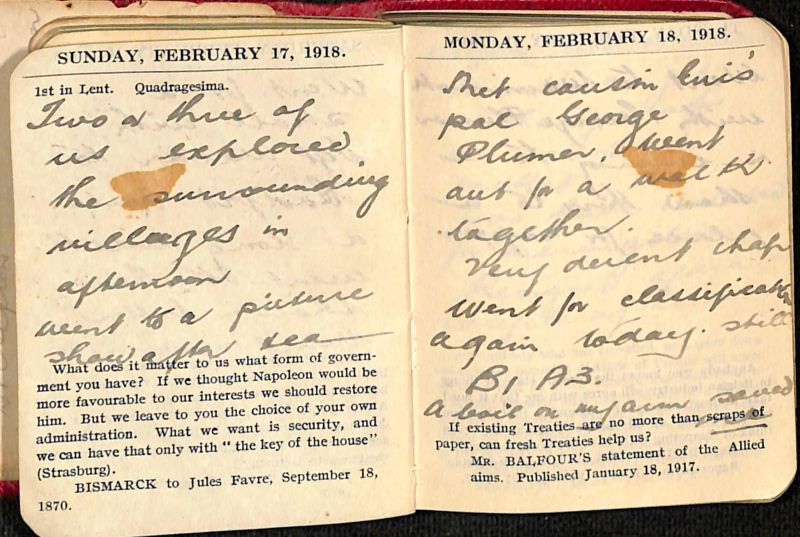 SUNDAY, FEBRUARY 17, 1918.
1st in Lent. Quadragesima.
Two or three of
us explored
the surrounding
villages in
afternoon
went to a picture
show after tea
What does it matter to us what form of govern-
ment you have? If we thought Napoleon would be
more favourable to our interests we should restore
him. But we leave to you the choice of your own
administration. What we want is security, and
we can have that only with "the key of the house"
(Strasburg).
BISMARCK to Jules Favre, September 18,
1870.
MONDAY, FEBRUARY 18, 1918.
Met cousin Evis's
pal George
Plumer, went
out for a walk
together.
Very decent chap
went for classification
again today. still
B1 A3.
A boil on my arm saved
me
If existing Treaties are no more than scraps of
paper, can fresh Treaties help us?
MR. BALFOUR'S statement of the Allied
aims. Published January 18, 1917.